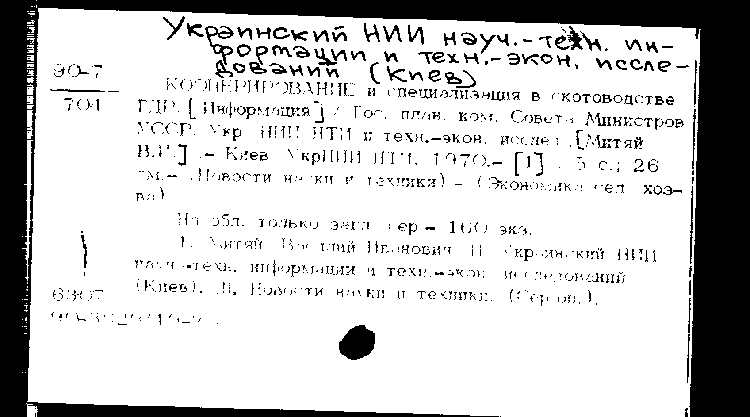 Украинский НИИ науч.-техн. ин-
формации и техн.-экон. иссле-
дований (Киев)
90-7
704
КООПЕРИРОВАНИЕ и специализация в скотоводстве
ГДР. [Информация] / Гос. план. ком. Совета Министров
УССР. Укр. НИИ НТИ и техн.-экон. исслед. [Митяй
В.И.] .- Киев УкрНИИ НТИ, 1970.- [1] , 5 с.; 26
см.- (Новости науки и техники) - (Экономика сел. хоз-
ва)
На обл. только загл. сер - 160 экз.
1. Митяй Василий Иванович II. Украинский НИИ
науч.-техн. информации и техн.-экон. исследований
(Киев). III. Новости науки и техники. (Сер. эк.).
6307